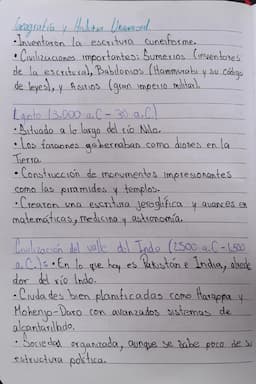 Geografía y Historia Universal
• Inventaron la escritura cuneiforme.
• Civilizaciones importantes: Sumerios (inventores
de la escritura), Babilonios (Hammurabi y su código
de leyes), y Asirios (gran imperio militar).
Egipto (3,000 a.C - 30 a.C)
• Situado a lo largo del río Nilo.
• Los faraones gobernaban como dioses en la
Tierra.
• Construcción de monumentos impresionantes
como las piramides y templos.
• Crearon una escritura jeroglífica y avances en
matemáticas, medicina y astronomía.
Civilización del valle del Indo (2500 a.C - 1500
a.C.): • En lo que hoy es Pakistán e India, alrede
dor del río Indo.
• Ciudades bien planificadas como Harappa y
Mohenjo-Daro con avanzados sistemas de
alcantarillado.
• Sociedad organizada, aunque se sabe poco de su
estructura política.